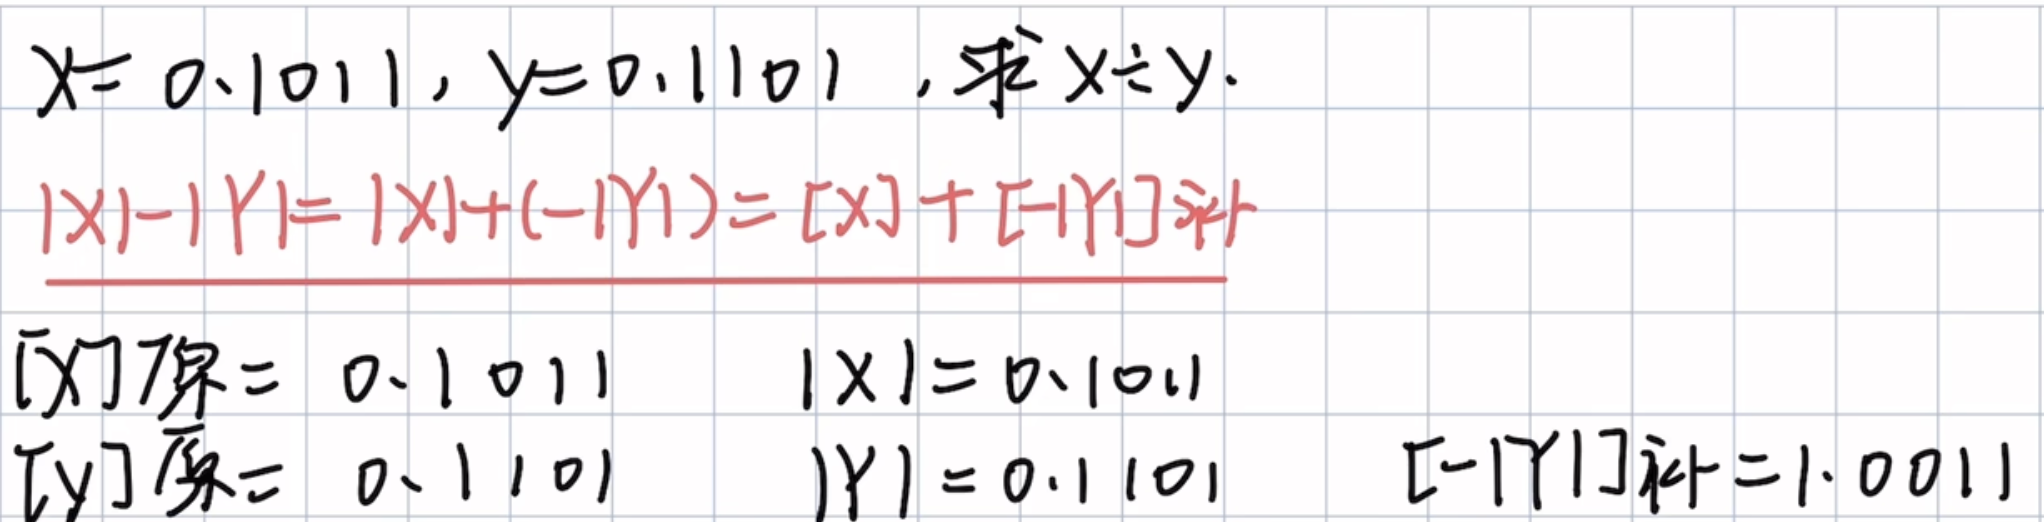 X=0.1011,y=0.1101,求X÷y.
|X|-|Y|=|X|+(-|Y|)=[X]+[-|Y|]补
[X]原=0.1011 |X|=0.1011
[y]原=0.1101 |Y|=0.1101 [-|Y|]补=1.0011